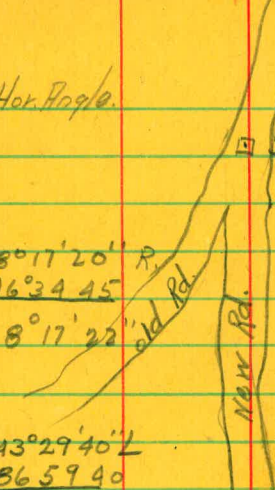 Hor. Angle.
8°17'20" R.
6°34 45
8°17'22"
old Rd.
New Rd.
43°29'40" L
86 59 40